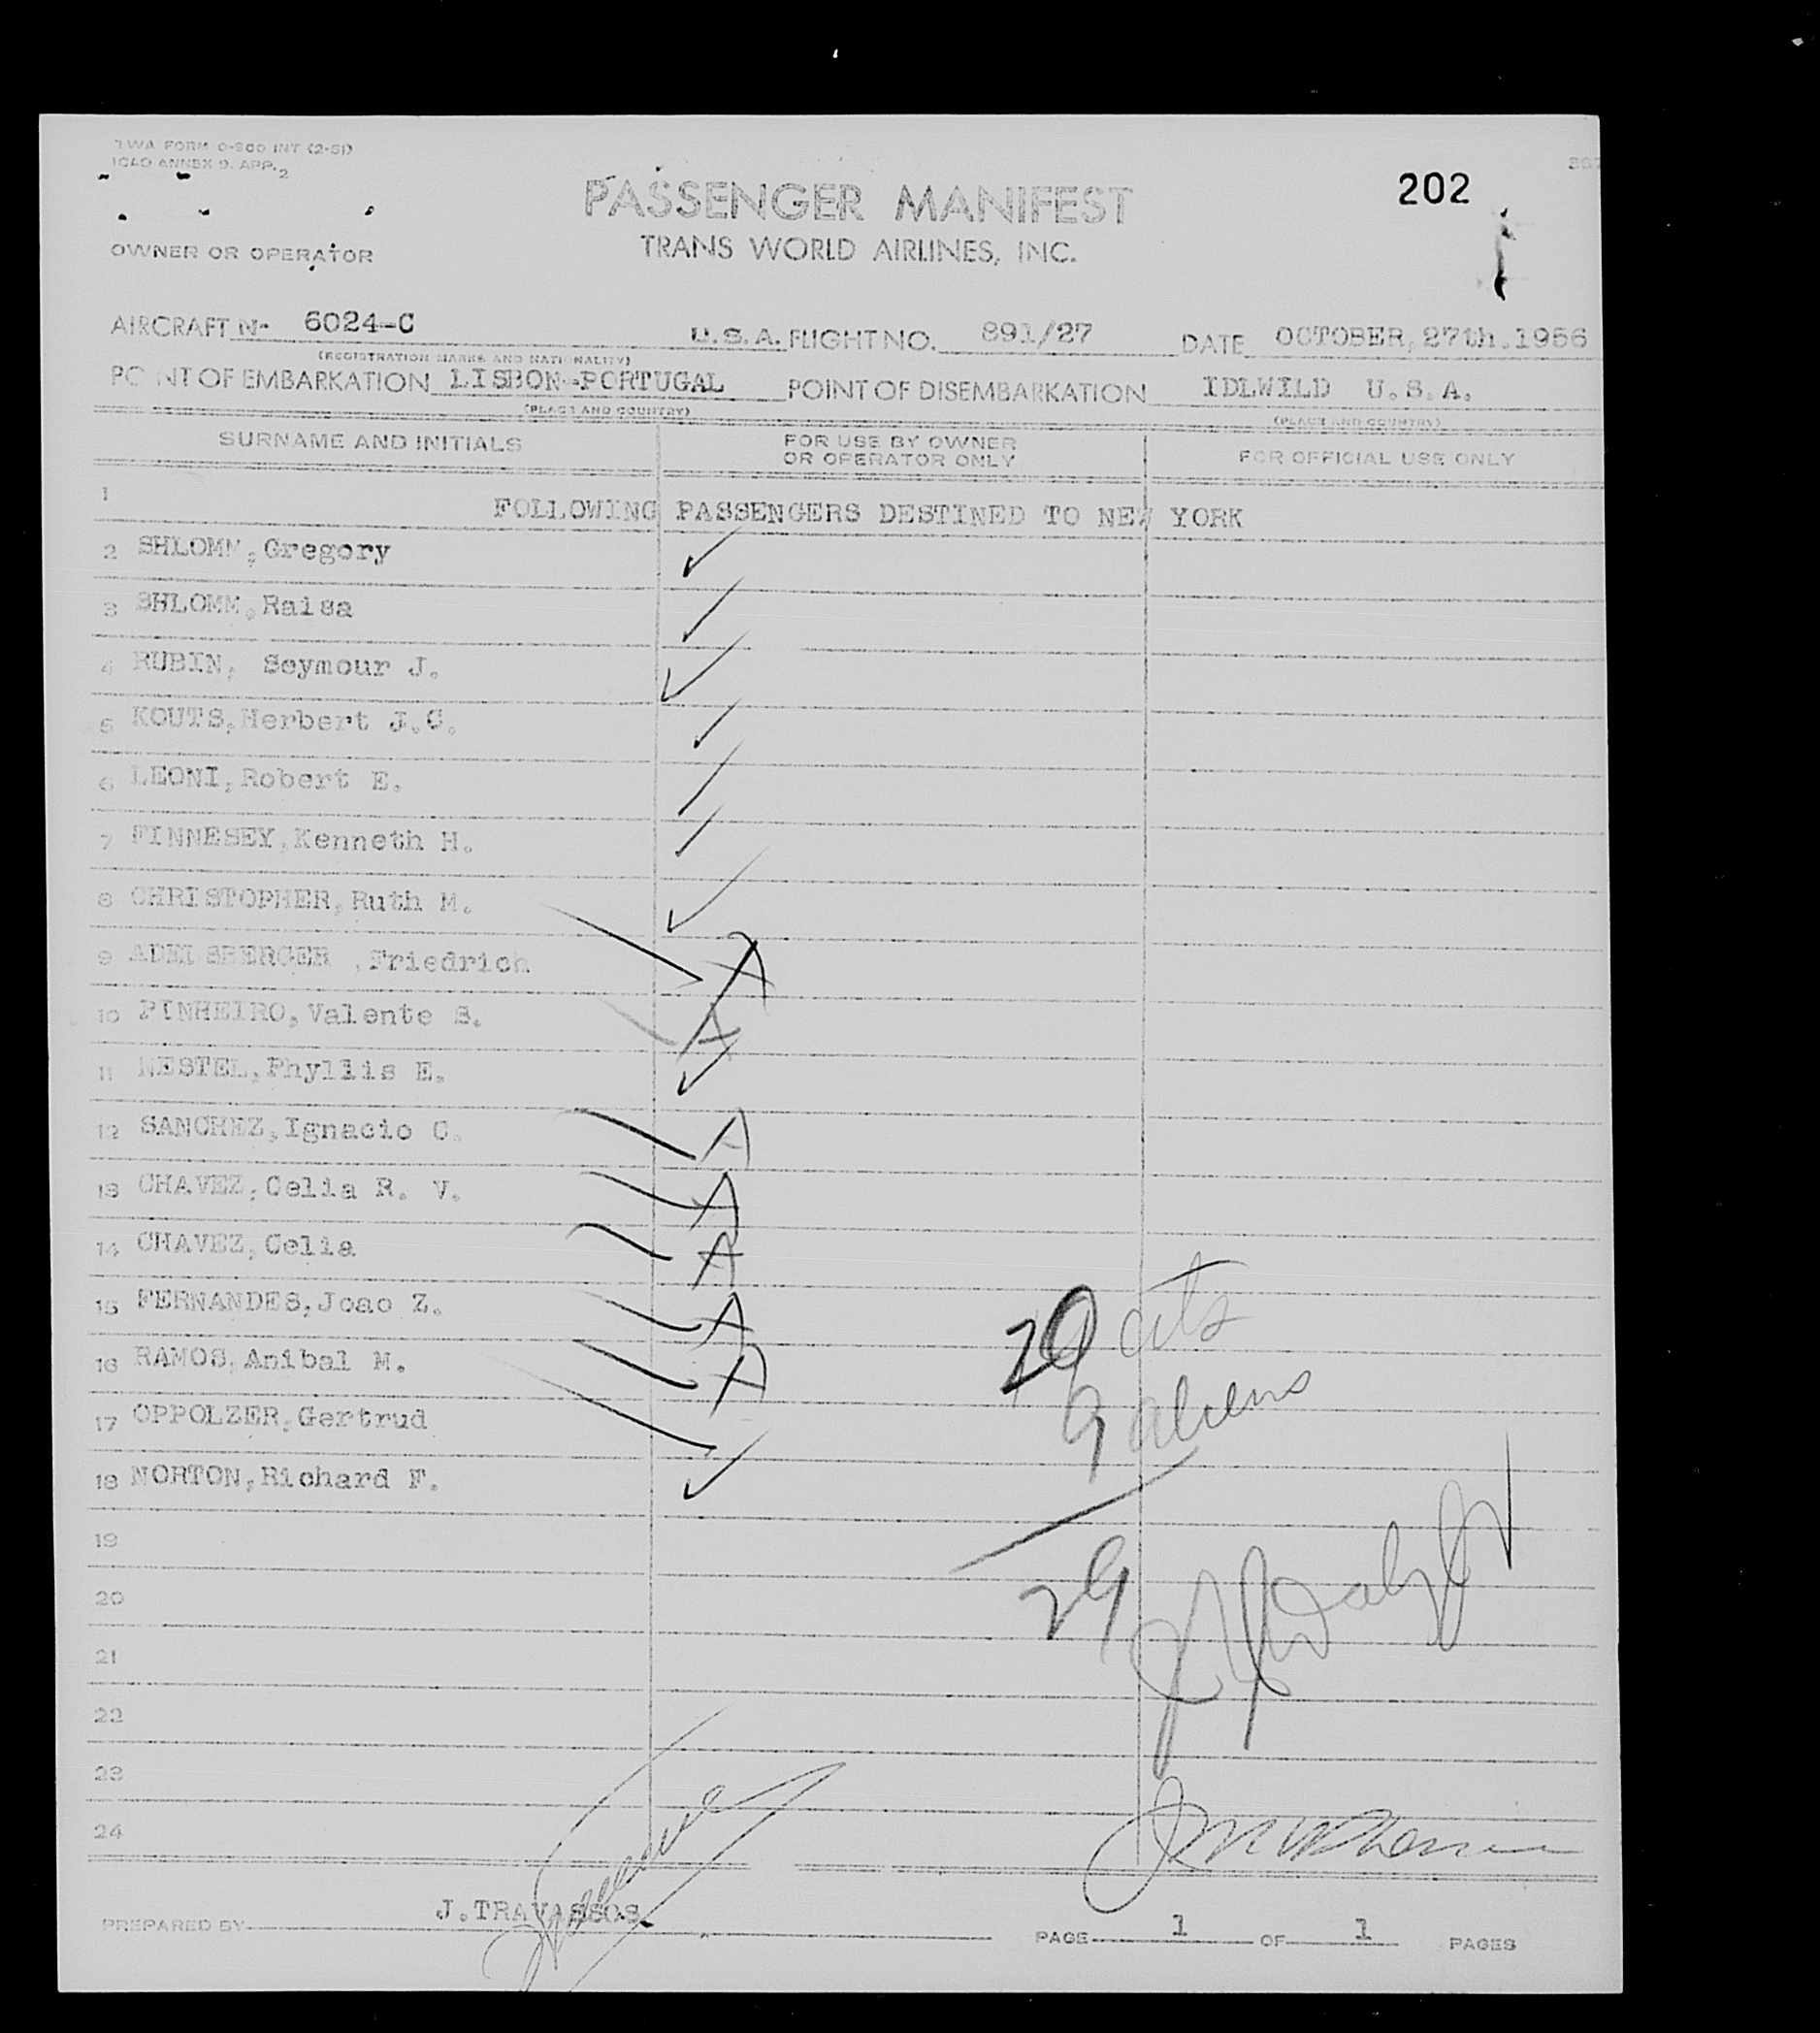 TWA FORM O-800 INT (2-51)
ICAO ANNEX 9. APP. 2
202
PASSENGER MANIFEST
TRANS WORLD AIRLINES, INC.
OWNER OR OPERATOR
AIRCRAFT N- 6024-C U.S.A. FLIGHT NO. 891/27 DATE OCTOBER, 27th.1956
(REGISTRATION MARKS AND NATIONALITY)
POINT OF EMBARKATION LISBON-PORTUGAL POINT OF DISEMBARKATION IDLWILD U.S.A.
(PLACE AND COUNTRY) (PLACE AND COUNTRY)
SURNAME AND INITIALS FOR USE BY OWNER OR OPERATOR ONLY FOR OFFICIAL USE ONLY
1 FOLLOWING PASSENGERS DESTINED TO NEW YORK
2 SHLOMM, Gregory
3 SHLOMM, Raisa
4 RUBIN, Seymour J.
5 KOUTS, Herbert J.C.
6 LEONI, Robert E.
7 FINNESEY, Kenneth H.
8 CHRISTOPHER, Ruth M.
9 ADELSBERGER ,Friedrich A
10 PINHEIRO, Valente S. A
11 NESTEL, Phyllis E.
12 SANCHEZ, Ignacio C. A
13 CHAVEZ, Celia R. V. A
14 CHAVEZ, Celia A
15 FERNANDES, Joao Z. A
16 RAMOS, Anibal M. A
17 OPPOLZER, Gertrud
18 NORTON, Richard F.
20 cits
9 aliens
29
19
20
21
22
23
24
PREPARED BY J.TRAVASSOS.
PAGE 1 OF 1 PAGES